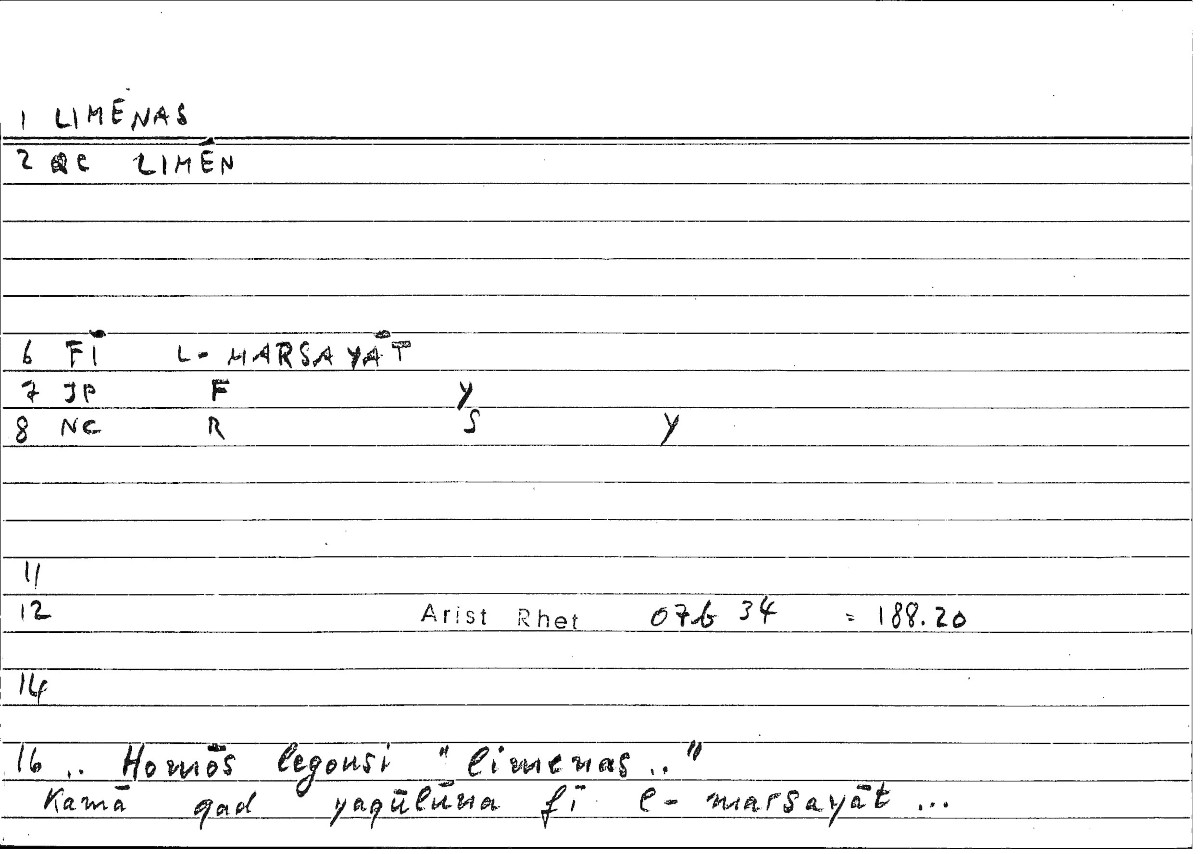 1 LIMĒNAS
2 QC LIMĒN
6 FĪ L- MARSAYĀT
7 JP F Y
8 NC R S Y
11
12 Arist Rhet 07b 34 = 188.20
14
16 .. Homōs legousi "limenas.."
Kamā qad yaqūlūna fī l- marsayāt ...